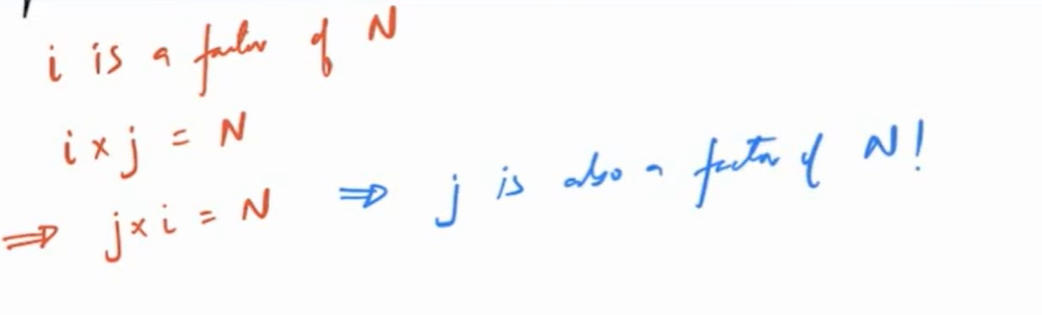 i is a factor of N
i × j = N
⇒ j × i = N ⇒ j is also a factor of N!